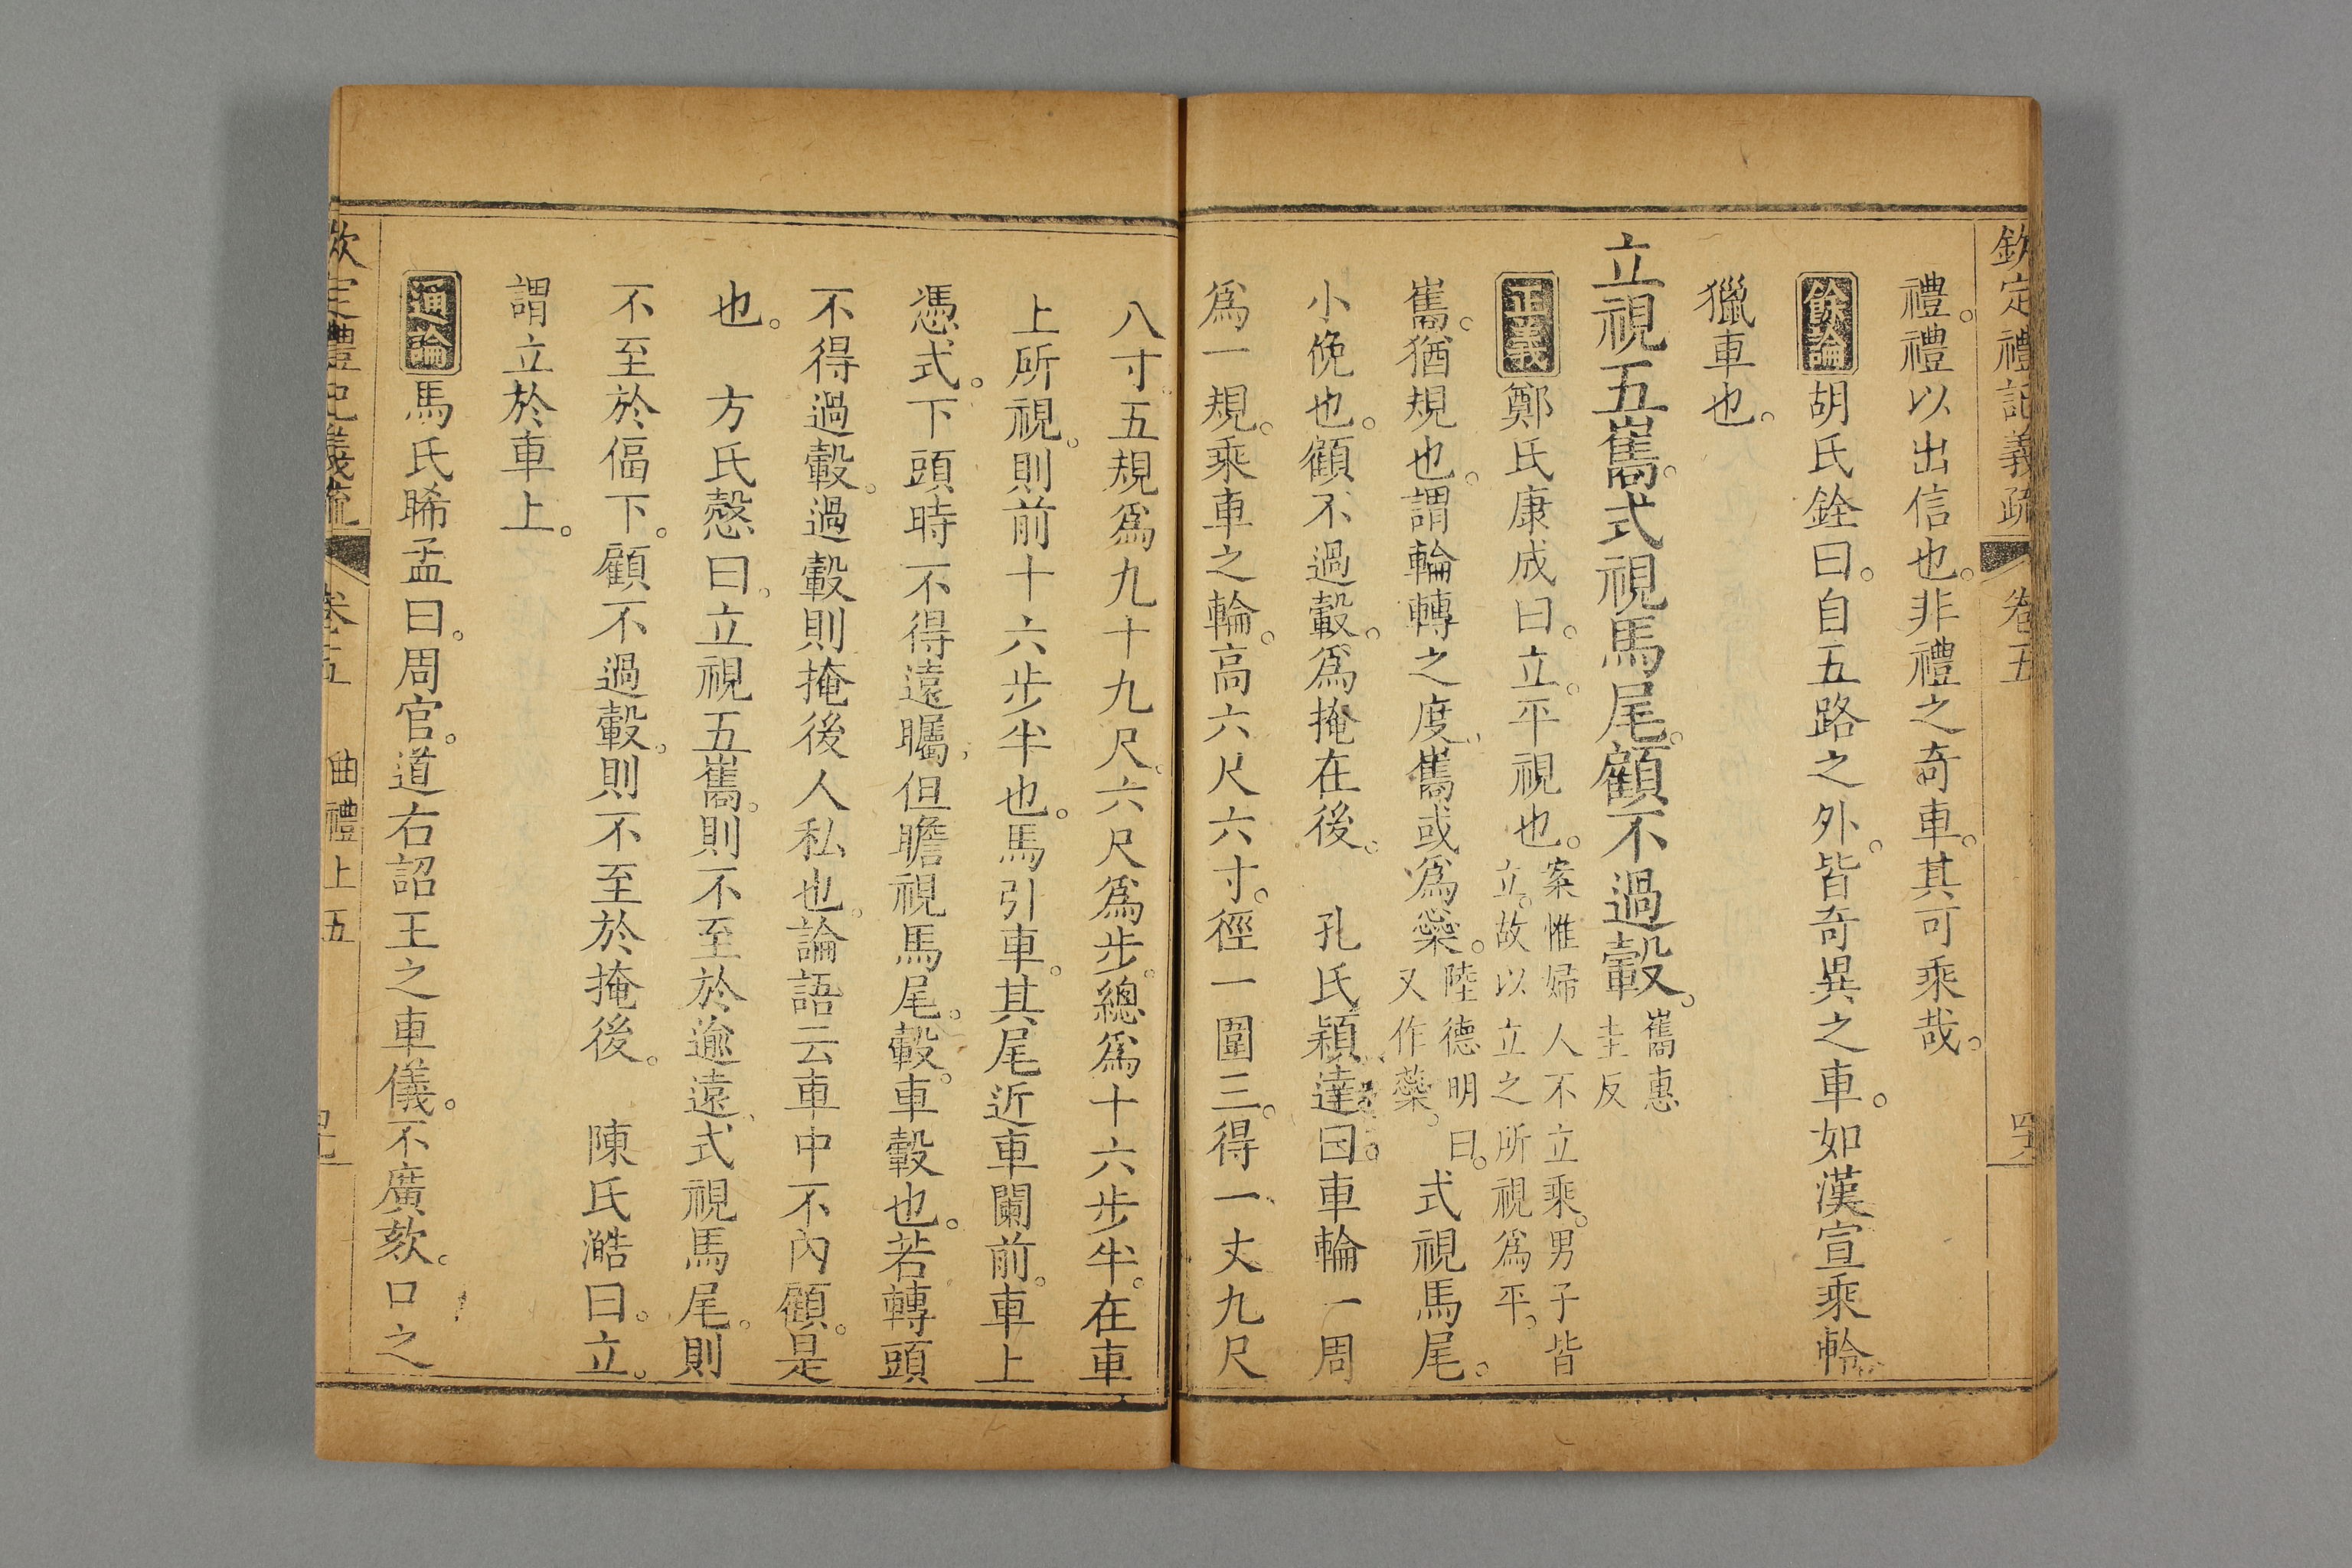 欽定禮記義疏 卷五
禮。禮以出信也。非禮之奇車。其可乘哉。
餘論 胡氏銓曰。自五路之外。皆奇異之車。如漢宣乘軨
獵車也。
立視五巂。式視馬尾。顧不過轂。巂惠
圭反
正義 鄭氏康成曰。立。平視也。案惟婦人不立乘。男子皆
立。故以立之所視爲平。
巂。猶規也。謂輪轉之度。巂或爲蘂。陸德明曰。
又作蘂。
式視馬尾。
小俛也。顧不過轂。爲掩在後。 孔氏穎達曰。車輪一周
爲一規。乘車之輪。高六尺六寸。徑一圍三。得一丈九尺
八寸。五規爲九十九尺。六尺爲步。總爲十六步半。在車
上所視。則前十六步半也。馬引車。其尾近車闌前。車上
憑式。下頭時不得遠矚。但瞻視馬尾。轂。車轂也。若轉頭
不得過轂。過轂則掩後人私也。論語云車中不內顧。是
也。 方氏慤曰。立視五巂。則不至於逾遠。式視馬尾。則
不至於偪下。顧不過轂。則不至於掩後。 陳氏澔曰。立。
謂立於車上。
通論 馬氏晞孟曰。周官。道右詔王之車儀。不廣欬。口之
欽定禮記義疏 卷五 曲禮上五